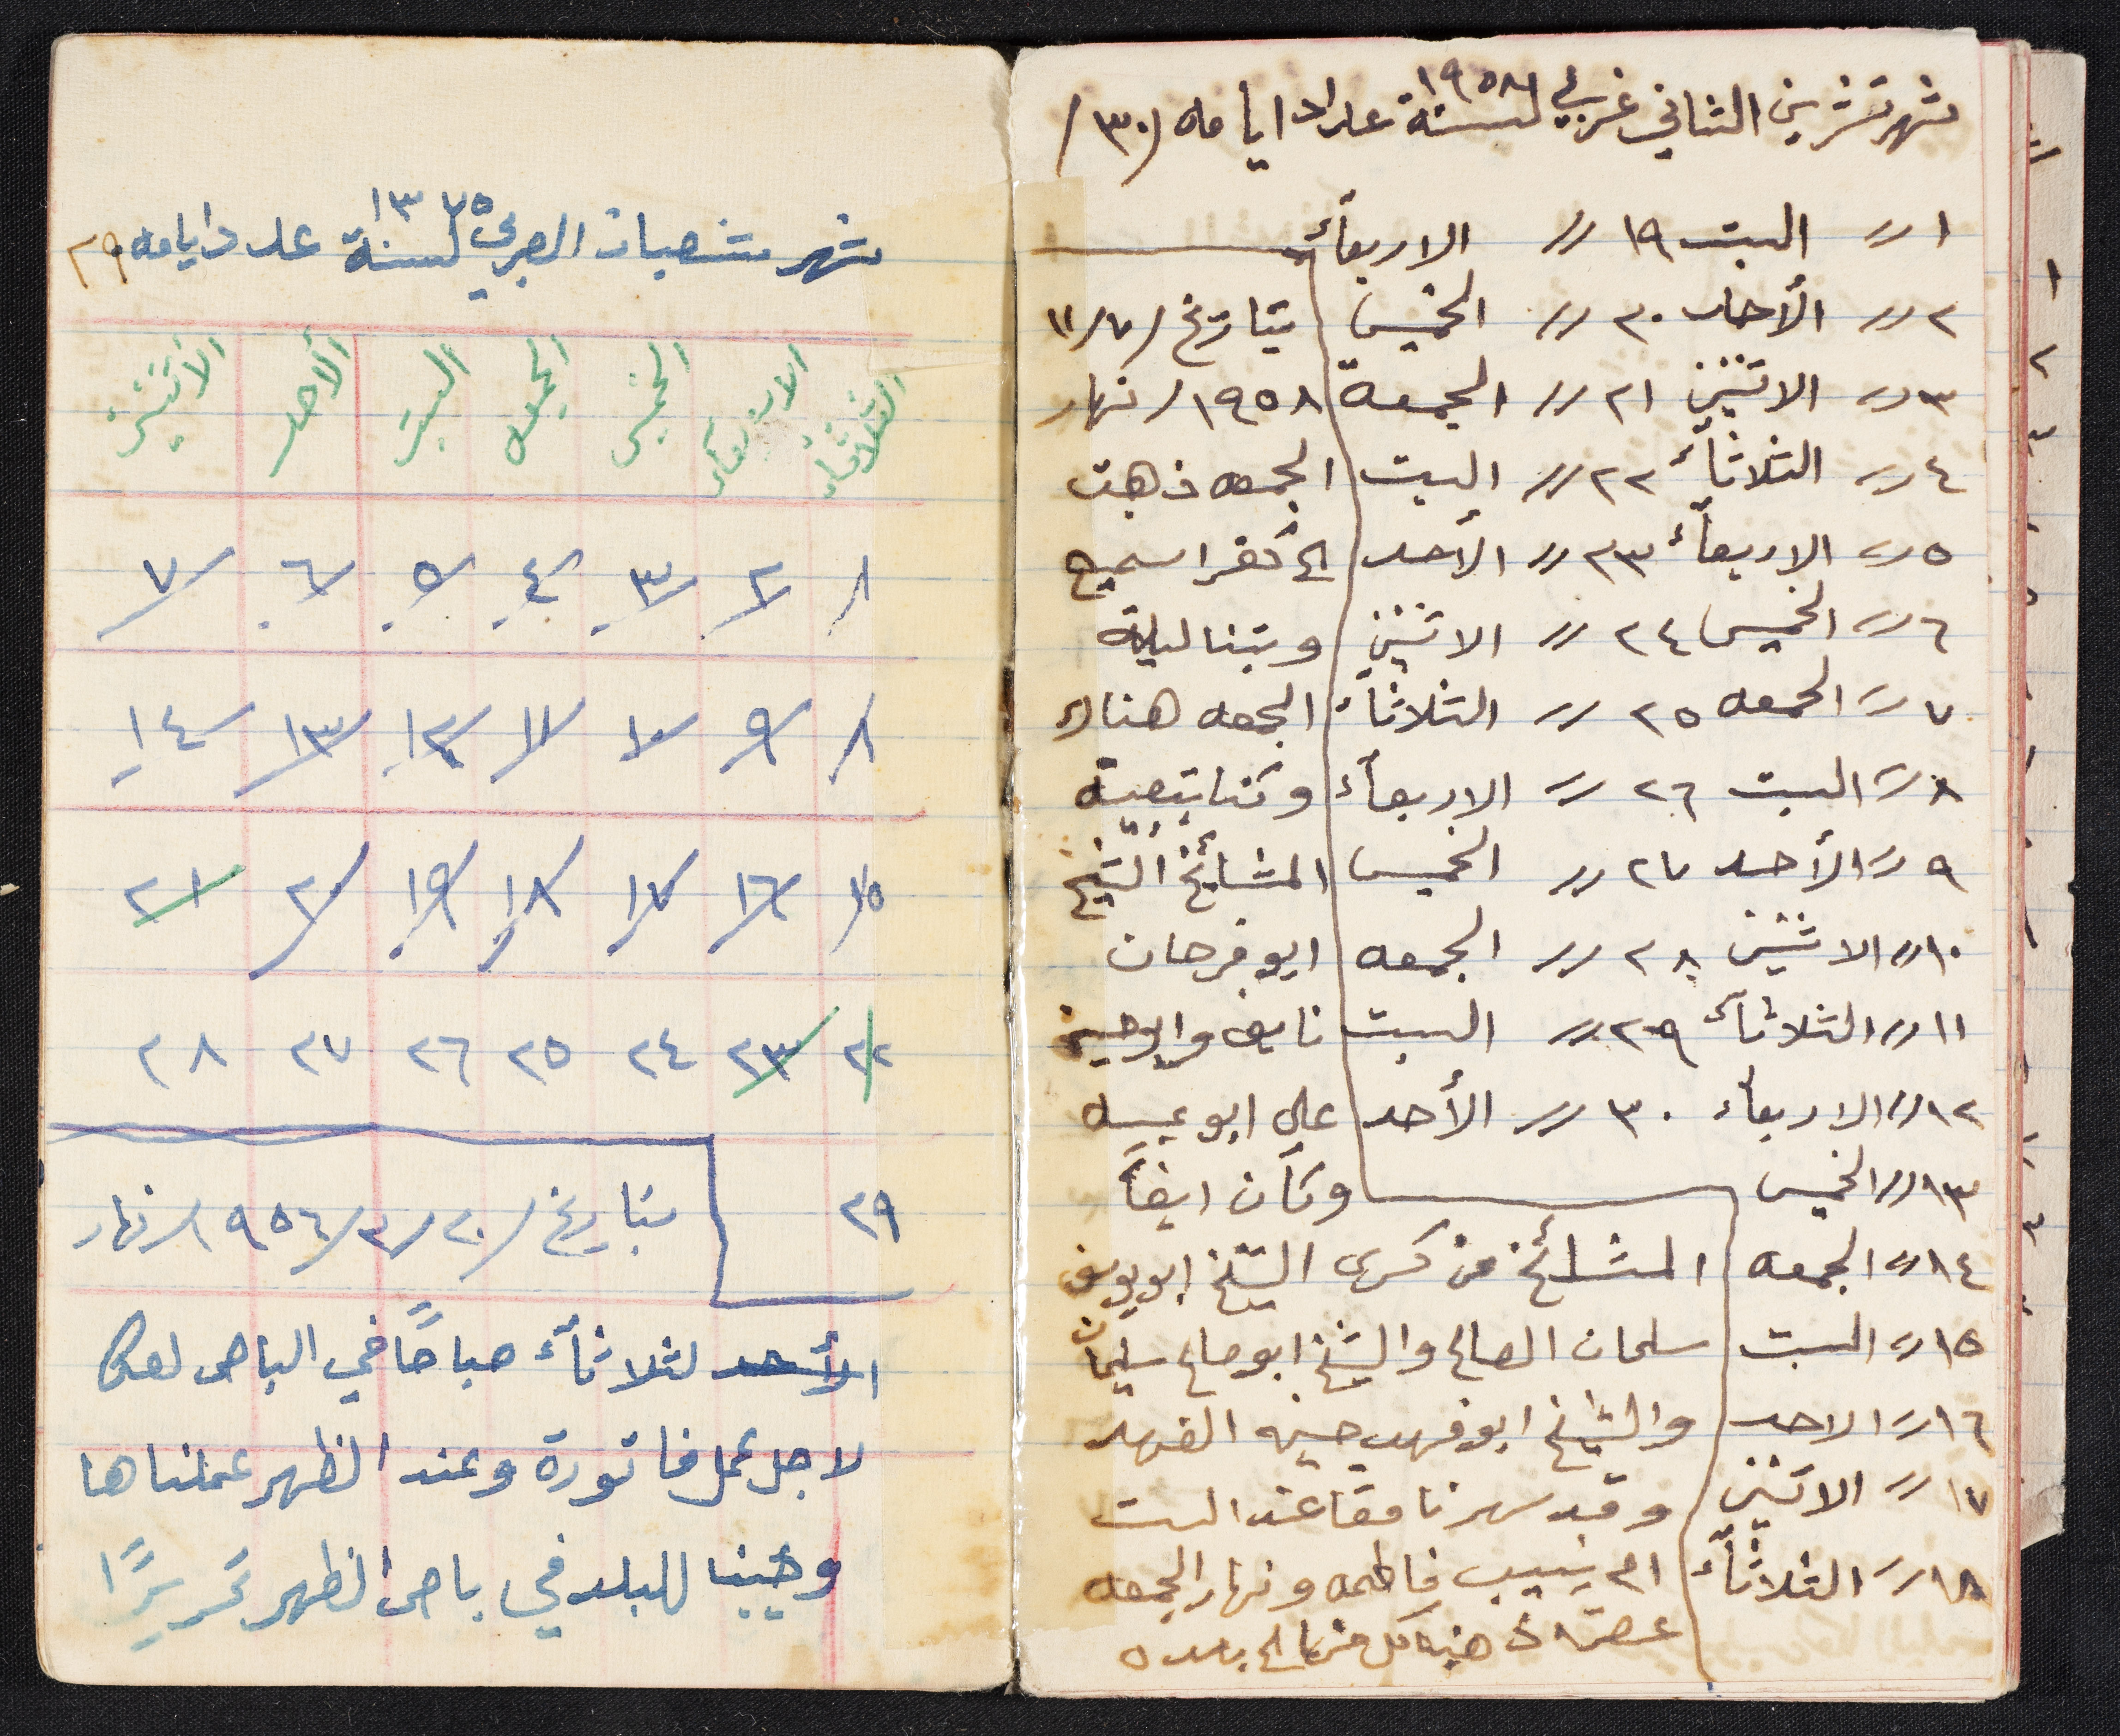 شهر تشرين الثاني غربي لسنة ١٩٥٨ عداد ايامه (٣٠)
١ // السبت ١٩ // الاربعأء
٢ // الأحد ٢٠ // الخميس
٣ // الاثنين ٢١ // الجمعة
٤ // الثلاثأء ٢٢ // السبت
٥ // الاربعأء ٢٣ // الأحد
٦ // الخميس ٢٤ // الاثنين
٧ // الجمعه ٢٥ // الثلاثأء
٨ // السبت ٢٦ // الاربعأء
٩ // الأحد ٢٧ // الخميس
١٠ // الاثنين ٢٨ // الجمعه
١١ // الثلاثأء ٢٩ // السبت
١٢ // الاربعأء ٣٠ // الأحد
١٣ // الخميس
١٤ // الجمعه
١٥ // السبت
١٦ // الاحد
١٧ // الاثنين
١٨ // الثلاثأء
بتاريخ /٧/١١
١٩٥٨/ نهار
الجمعه ذهبت
الى كفر اسميع
وبتنا ليلة
الجمعه هناك
وكنا بتعية
المشائخ الشيخ
ابو فرحان
نايف وابو حسين
علي ابو عيسه
وكان ايضاً
المشائخ من كسرى الشيخ ابو يوسف
سلمان الصالح والشيخ ابو صالح سليمان
والشيخ ابو فهد حسين الفهد
وقد سهرنا معا عند الست
ام نسيب فاطمه ونهار الجمعه
عصراً ذهبنا كل منا الى بلده
شهر شعبان العربي لسنة ١٣٧٥ عدد ايامه ٢٩
الثلاثاء الاربعاء الخميس الجمعه السبت الأحد الأثنين
١ ٢ ٣ ٤ ٥ ٦ ٧
٨ ٩ ١٠ ١١ ١٢ ١٣ ١٤
١٥ ١٦ ١٧ ١٨ ١٩ ٢٠ ٢١
٢٢ ٢٣ ٢٤ ٢٥ ٢٦ ٢٧ ٢٨
٢٩ بتاريخ /٢٠/٣/١٩٥٦ نهار
الأحد لثلاثأء صباحًا في الباص لعكا
لاجل عمل فاتورة وعند الظهر عملناها
وجينا للبلد في باص الظهر تحريرًا